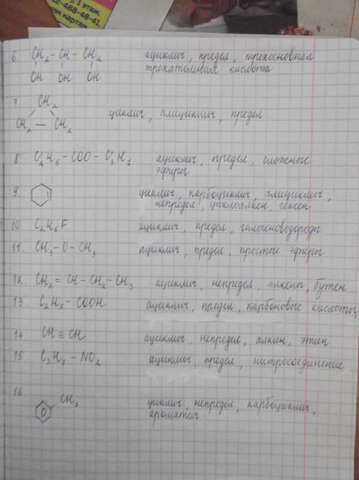 6 CH₂ - CH - CH₂ ациклич, предел, трехосновная
OH OH OH трехатомная кислота
7 CH₂
CH₂ — CH₂ циклич, алициклич, предел
8 - COO - ациклич, предел, сложные
эфиры
9 циклич, карбоциклич, алициклич,
непредел, циклоалкен,
10 C₂H₅F ациклич, предел,
11 CH₃ - O - CH₃ ациклич, предел, простые эфиры
12 CH₂ = CH - CH₂ - CH₃ ациклич, непредел, алкены, бутен
13 C₂H₅ - COOH ациклич, предел, карбоновые кислоты
14 CH ≡ CH ациклич, непредел, алкин, этин
15 - NO₂ ациклич, предел, нитросоединение
16 CH₃ циклич, непредел, карбоциклич,
ароматич